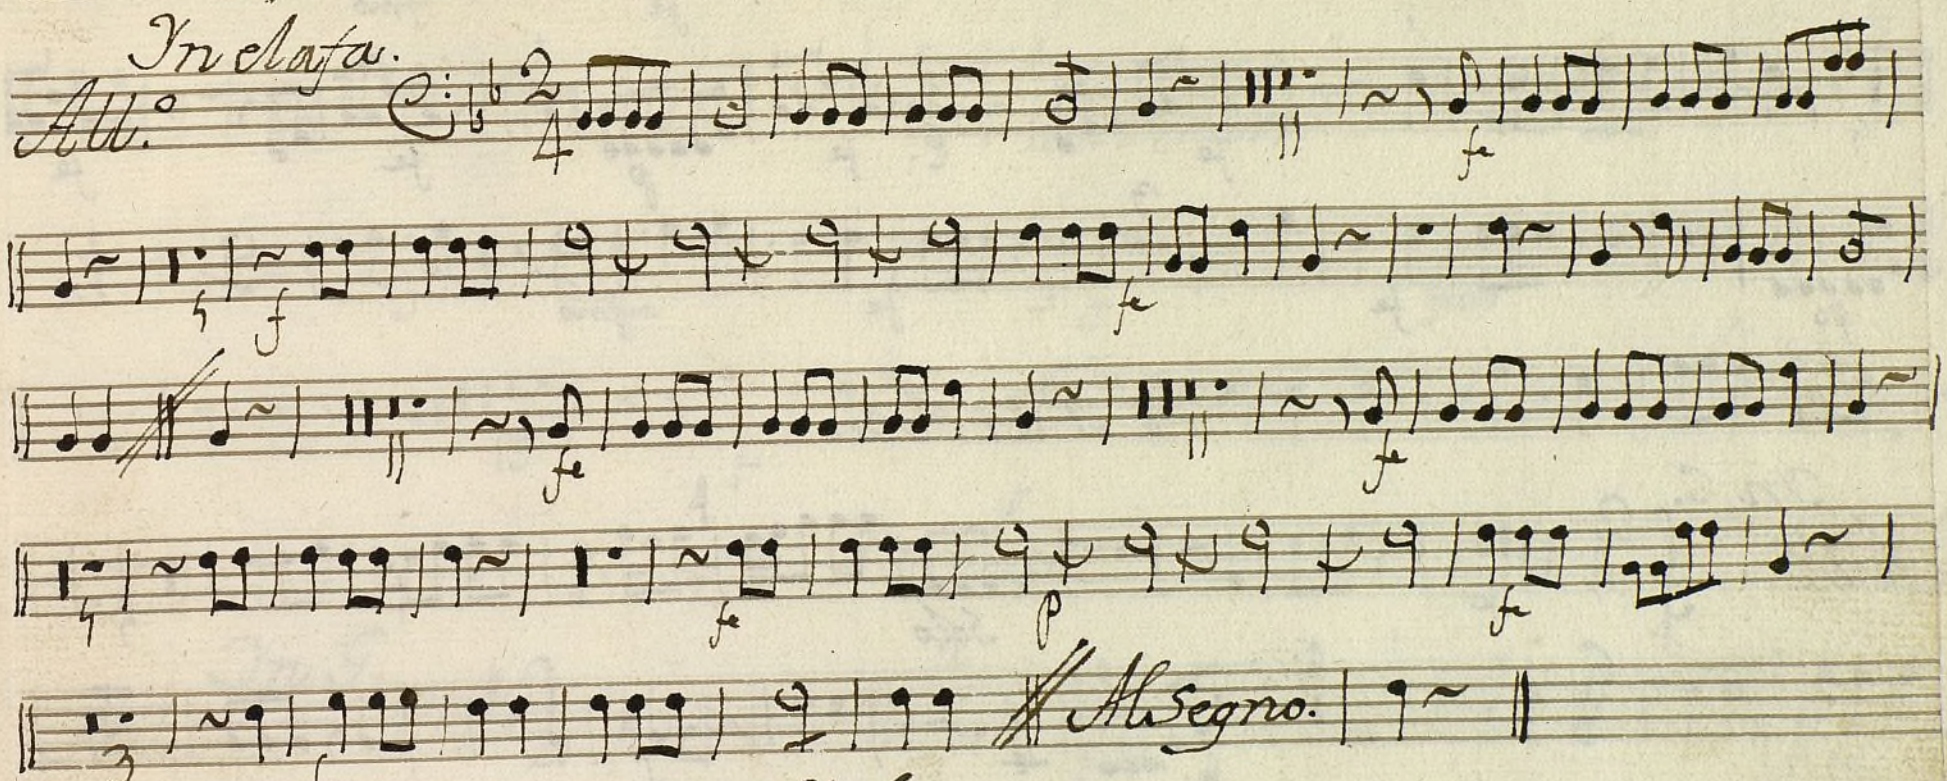 Yn elafa.
All.º 2/4
11 fe
5 f fe
11 fe 11 fe
5 fe p fe
3 Al Segno.